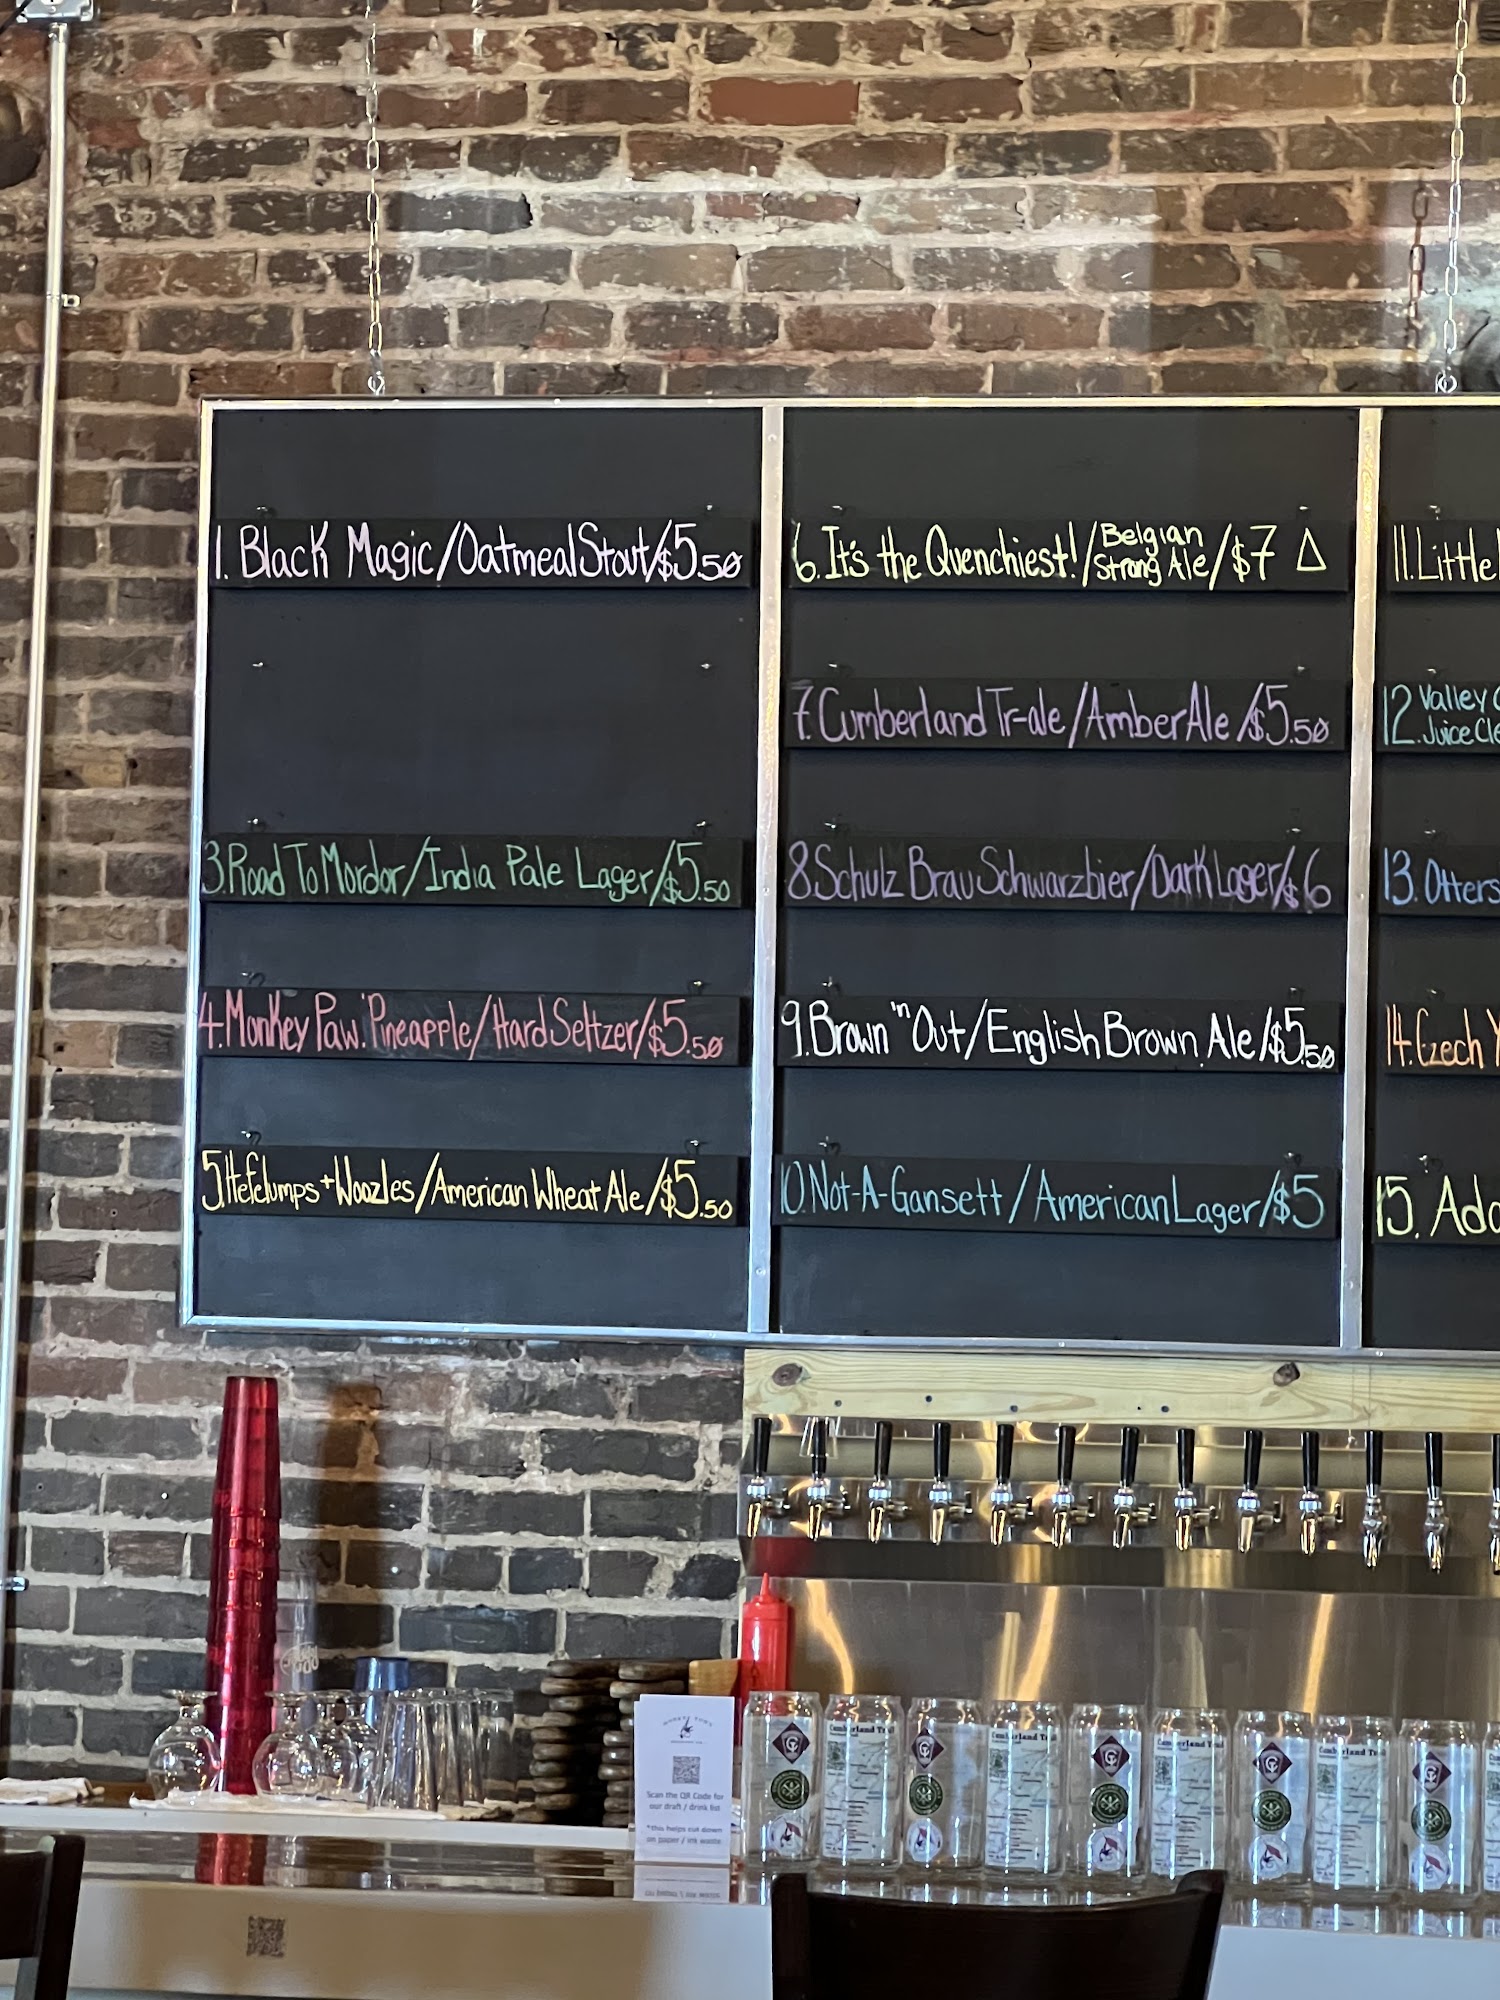 1. Black Magic/Oatmeal Stout/$5.50
3. Road To Mordor/India Pale Lager/$5.50
4. Monkey Paw: Pineapple/Hard Seltzer/$5.50
5. Hefelumps + Woozles/American Wheat Ale/$5.50
6. It's the Quenchiest!/Belgian Strong Ale/$7 Δ
7. Cumberland Tr-ale/Amber Ale/$5.50
8. Schulz Brau Schwarzbier/Dark Lager/$6
9. Brown "n Out/English Brown Ale/$5.50
10. Not-A-Gansett/American Lager/$5
11. Little
12. Valley
Juice Cle
13. Otters
14. Czech
15. Ada
Scan the QR Code for
our draft / drink list
*this helps cut down
on paper / ink waste
Cumberland Trail
Cumberland Trail
Cumberland Trail
Cumberland Trail